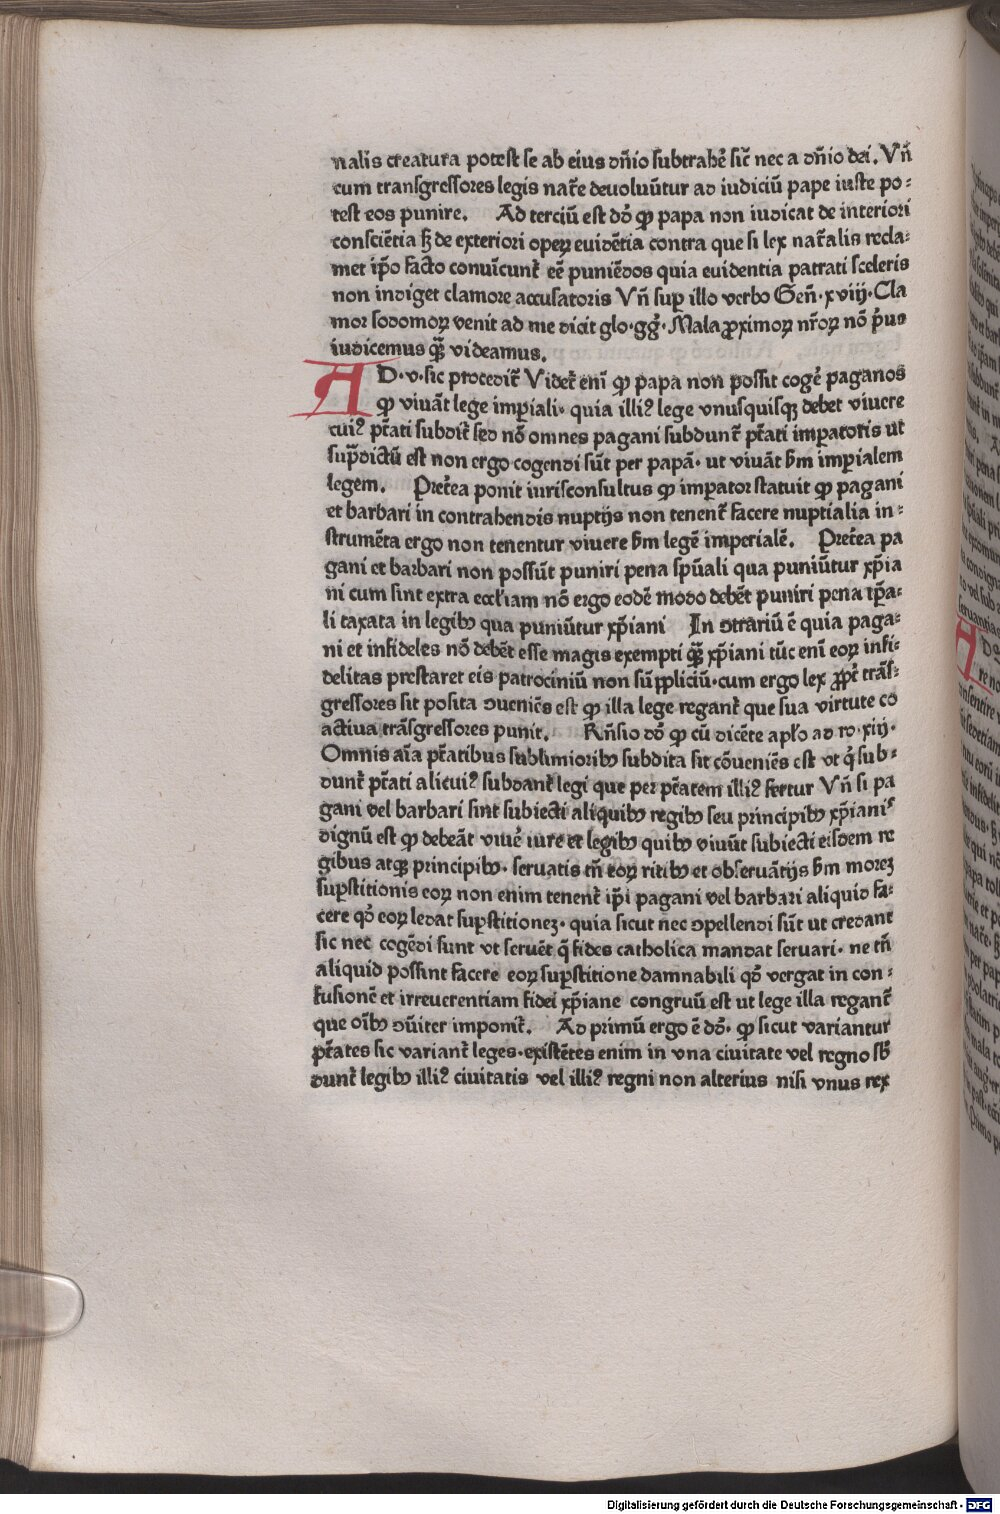 nalis creatura potest se ab eius dñio subtrahe͛ sic̃ nec a dñio dei. Vñ
cum transgressores legis nat̃e deuoluũtur ad iudiciũ pape iuste po⸗
test eos punire. Ad terciũ est dõ ꝙ papa non iudicat de interiori
consciẽtia sꝫ de exteriori opeꝝ euidẽtia contra que si lex nat̃alis recla⸗
met ip̃o facto conuĩcunt̃ eẽ puniẽdos quia euidentia patrati sceleris
non indiget clamore accusatoris Vñ suꝑ illo verbo Geñ·xviij·Cla
mor sodomoꝝ venit ad me dicit glo·gg̃·Mala ꝓximoꝝ nr̃oꝝ nõ p̃us
iudicemus qꝫ̃ videamus.
AD·v·sic procedit̃ Videt̃ enĩ ꝙ papa non possit coge͛ paganos
ꝙ viuãt lege imꝑiali· quia illiꝰ lege vnusquisqꝫ debet viuere
cuiꝰ pt̃ati subdit̃ sed nõ omnes pagani subdunt̃ pt̃ati imꝑatoris ut
sup̃dictũ est non ergo cogendi sũt per papã· ut viuãt ẜm imꝑialem
legem. Pret̃ea ponit iurisconsultus ꝙ imꝑator statuit ꝙ pagani
et barbari in contrahendis nuptijs non tenent̃ facere nuptialia in⸗
strumẽta ergo non tenentur viuere ẜm legẽ imperialẽ. Pret̃ea pa
gani et barbari non possũt puniri pena sp̃uali qua puniũtur xp̃ia
ni cum sint extra eccl̃iam nõ ergo eodẽ modo debẽt puniri pena tp̃a⸗
li taxata in legibꝰ qua puniũtur xp̃iani In ꝯtrariũ ẽ quia paga⸗
ni et infideles nõ debẽt esse magis exempti qꝫ̃ xp̃iani tũc enĩ eoꝝ infi⸗
delitas prestaret eis patrociniũ non sup̃pliciũ·cum ergo lex ꝓpt̃ trãs⸗
gressores sit posita ꝯueniẽs est ꝙ illa lege regant̃ que sua virtute co
actiua trãsgressores punit. Rñsio dõ ꝙ cũ dicẽte apl̃o ad ro·xiij·
Omnis aĩa pt̃atibus sublimioribꝰ subdita sit cõueniẽs est vt q͛ sub⸗
dunt̃ pt̃ati alicuiꝰ subdant̃ legi que per pt̃atem illiꝰ fertur Vñ si pa
gani vel barbari sint subiecti aliquibꝰ regibꝰ seu principibꝰ xp̃ianis
dignũ est ꝙ debeãt viue͛ iure et legibꝰ quibꝰ viuũt subiecti eisdem re
gibus atqꝫ principibꝰ· seruatis tñ eoꝝ ritibꝰ et obseruãtijs ẜm morez
suꝑstitionis eoꝝ non enim tenent̃ ip̃i pagani vel barbari aliquid fa⸗
cere qd̛ eoꝝ ledat suꝑstitionez· quia sicut nec ꝯpellendi sũt ut credant
sic nec cogẽdi sunt vt seruẽt q̃ fides catholica mandat seruari· ne tñ
aliquid possint facere eoꝝ suꝑstitione damnabili qd̛ vergat in con⸗
fusionẽ et irreuerentiam fidei xp̃iane congruũ est ut lege illa regant̃
que oĩbꝰ ꝯũiter imponit̃. Ad primũ ergo ẽ dõ· ꝙ sicut variantur
pt̃ates sic variant̃ leges·existẽtes enim in vna ciuitate vel regno sb̃
dunt̃ legibꝰ illiꝰ ciuitatis vel illiꝰ regni non alterius nisi vnus rex
Digitalisierung gefördert durch die Deutsche Forschungsgemeinschaft - DFG